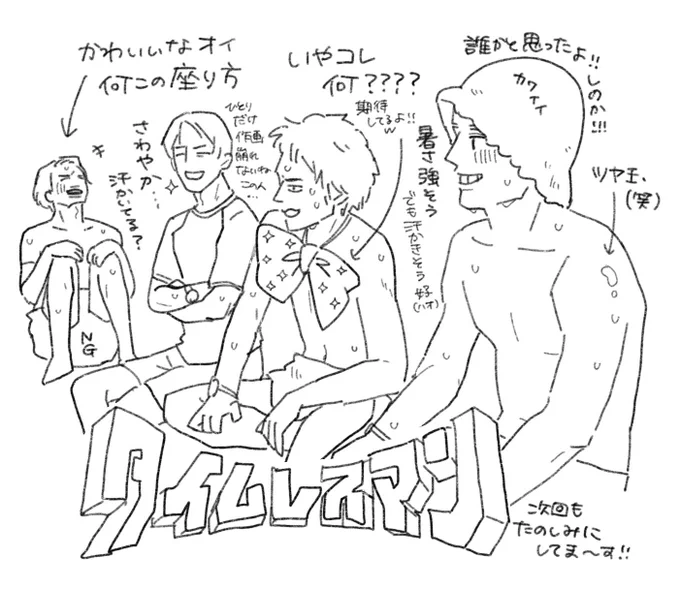 かわいいなオイ
何この座り方
いやコレ
何????
期待
してるよ!!
w
誰かと思ったよ!!
しのか!!!
カワイイ
ひとり
だけ
作画
崩れ
ないね
この人
…
さわやか…
汗かいてる?
暑さ強そう
でも汗かきそう
好
(ハオ)
ツヤ玉、
(笑)
NG
タイムレスマン
次回も
たのしみに
してま〜す!!